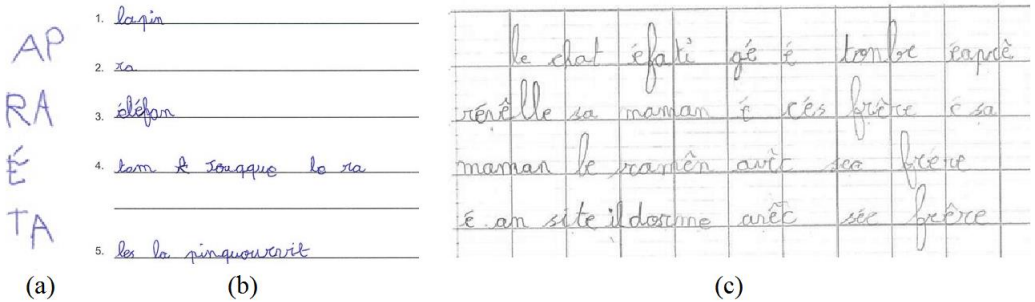 AP
RA
É
TA
(a)
1. lapin
2. ra
3. éléfan
4. tom & jouqque lo ra
5. les la pinquouvrit
(b)
le chat éfati gé é tonbe éaprè
révêlle sa maman é cés frère é sa
maman le ramên avêc seo frére
é an site il dorme avêc sée frêre
(c)